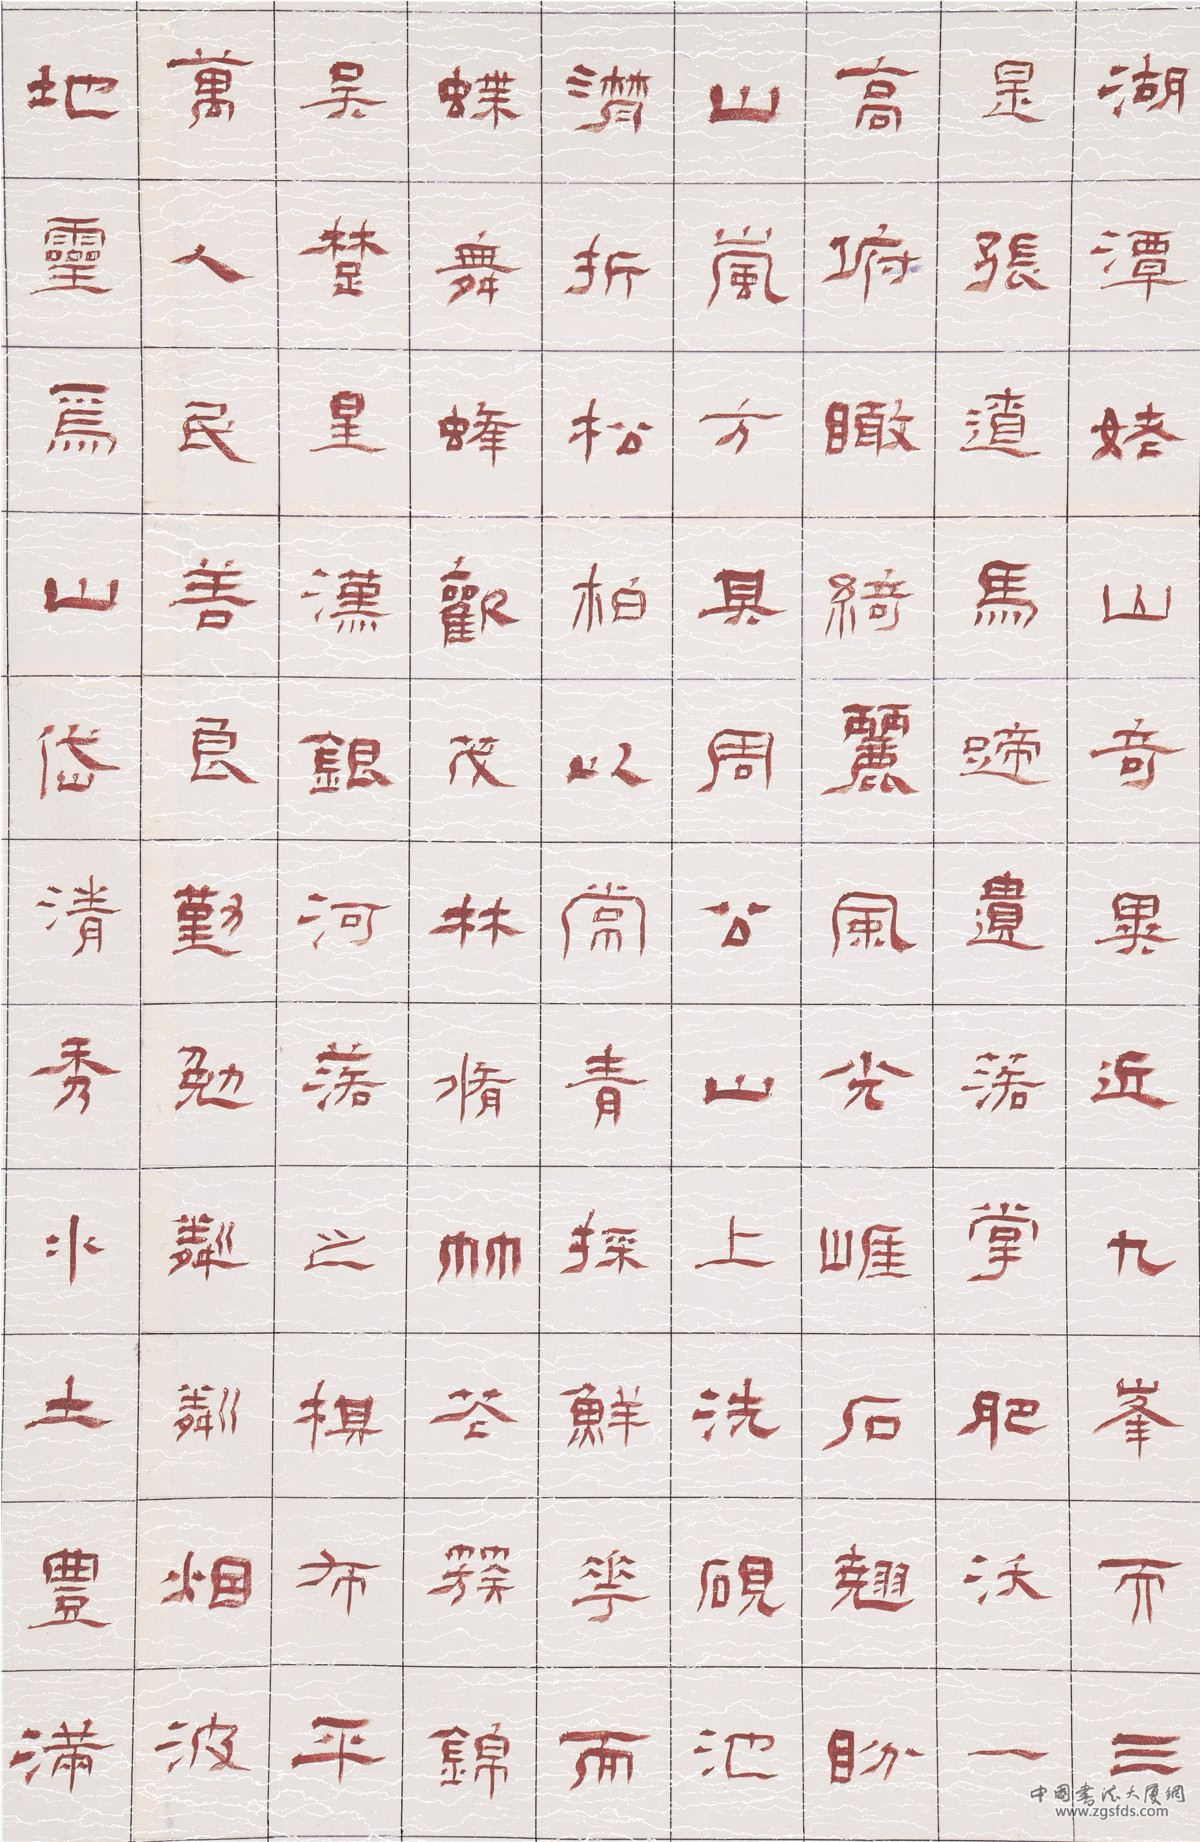 湖潭姥山奇異近九峯而三
是張遺馬蹄遺落掌肥沃一
高俯瞰綺麗風光崖石翹盼
山嵐方其周公山上洗硯池
濟折松柏以常青探鮮華而
蝶舞蜂歡茂林脩竹芸簇錦
吴楚星漢銀河落之棋布平
萬人民善良勤勉粼粼烟波
地靈為山岱清秀水土豐滿
中國書法大廈網
www.zgsfds.com